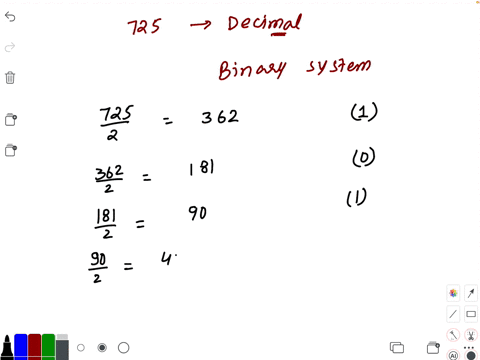 725 → Decimal
Binary system
725/2 = 362 (1)
362/2 = 181 (0)
181/2 = 90 (1)
90/2 = 4